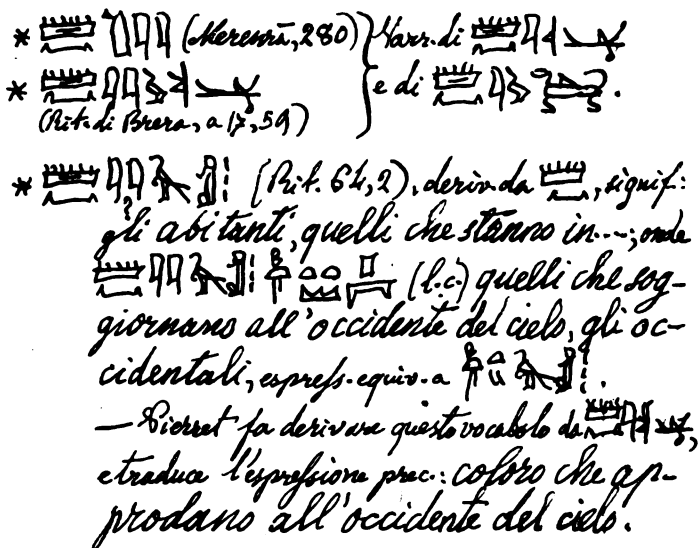 * 𓏠𓈖 (Merenrā, 280) } Varr. di 𓏠𓈖
* 𓏠𓈖 e di 𓏠𓈖 .
(Rit. di Brera, a 17, 59)
* 𓏠𓈖 (Rit. 64, 2), deriv. da 𓏠𓈖, signif:
gli abitanti, quelli che stanno in....; onde
𓏠𓈖 (l.c.) quelli che sog-
giornano all'occidente del cielo, gli oc-
cidentali, espress. equiv. a .
— Pierret fa derivare questo vocabolo da 𓏠𓈖,
e traduce l'espressione prec.: coloro che ap-
prodano all'occidente del cielo.